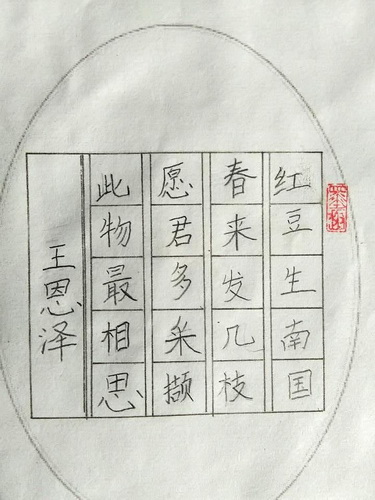 红豆生南国
春来发几枝
愿君多采撷
此物最相思
王恩泽